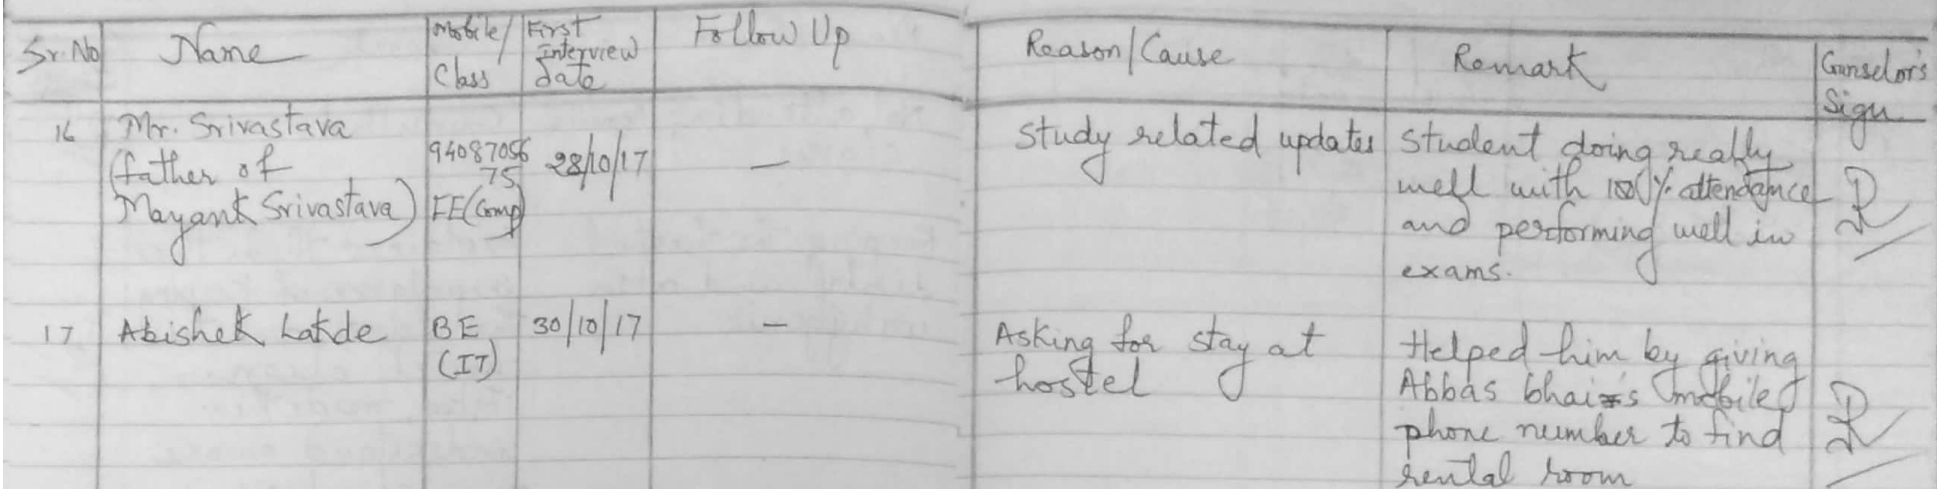 Sr. No
Name
Mobile/
Class
First
Interview
date
Follow Up
Reason/Cause
Remark
Counselor's
Sign
16
Mr. Srivastava
(father of
Mayank Srivastava)
94087056
75
FE(Comp)
28/10/17
—
Study related updates
Student doing really
well with 100% attendance
and performing well in
exams.
17
Abishek Lakde
BE
(IT)
30/10/17
—
Asking for stay at
hostel
Helped him by giving
Abbas bhai's mobile
phone number to find
rental room